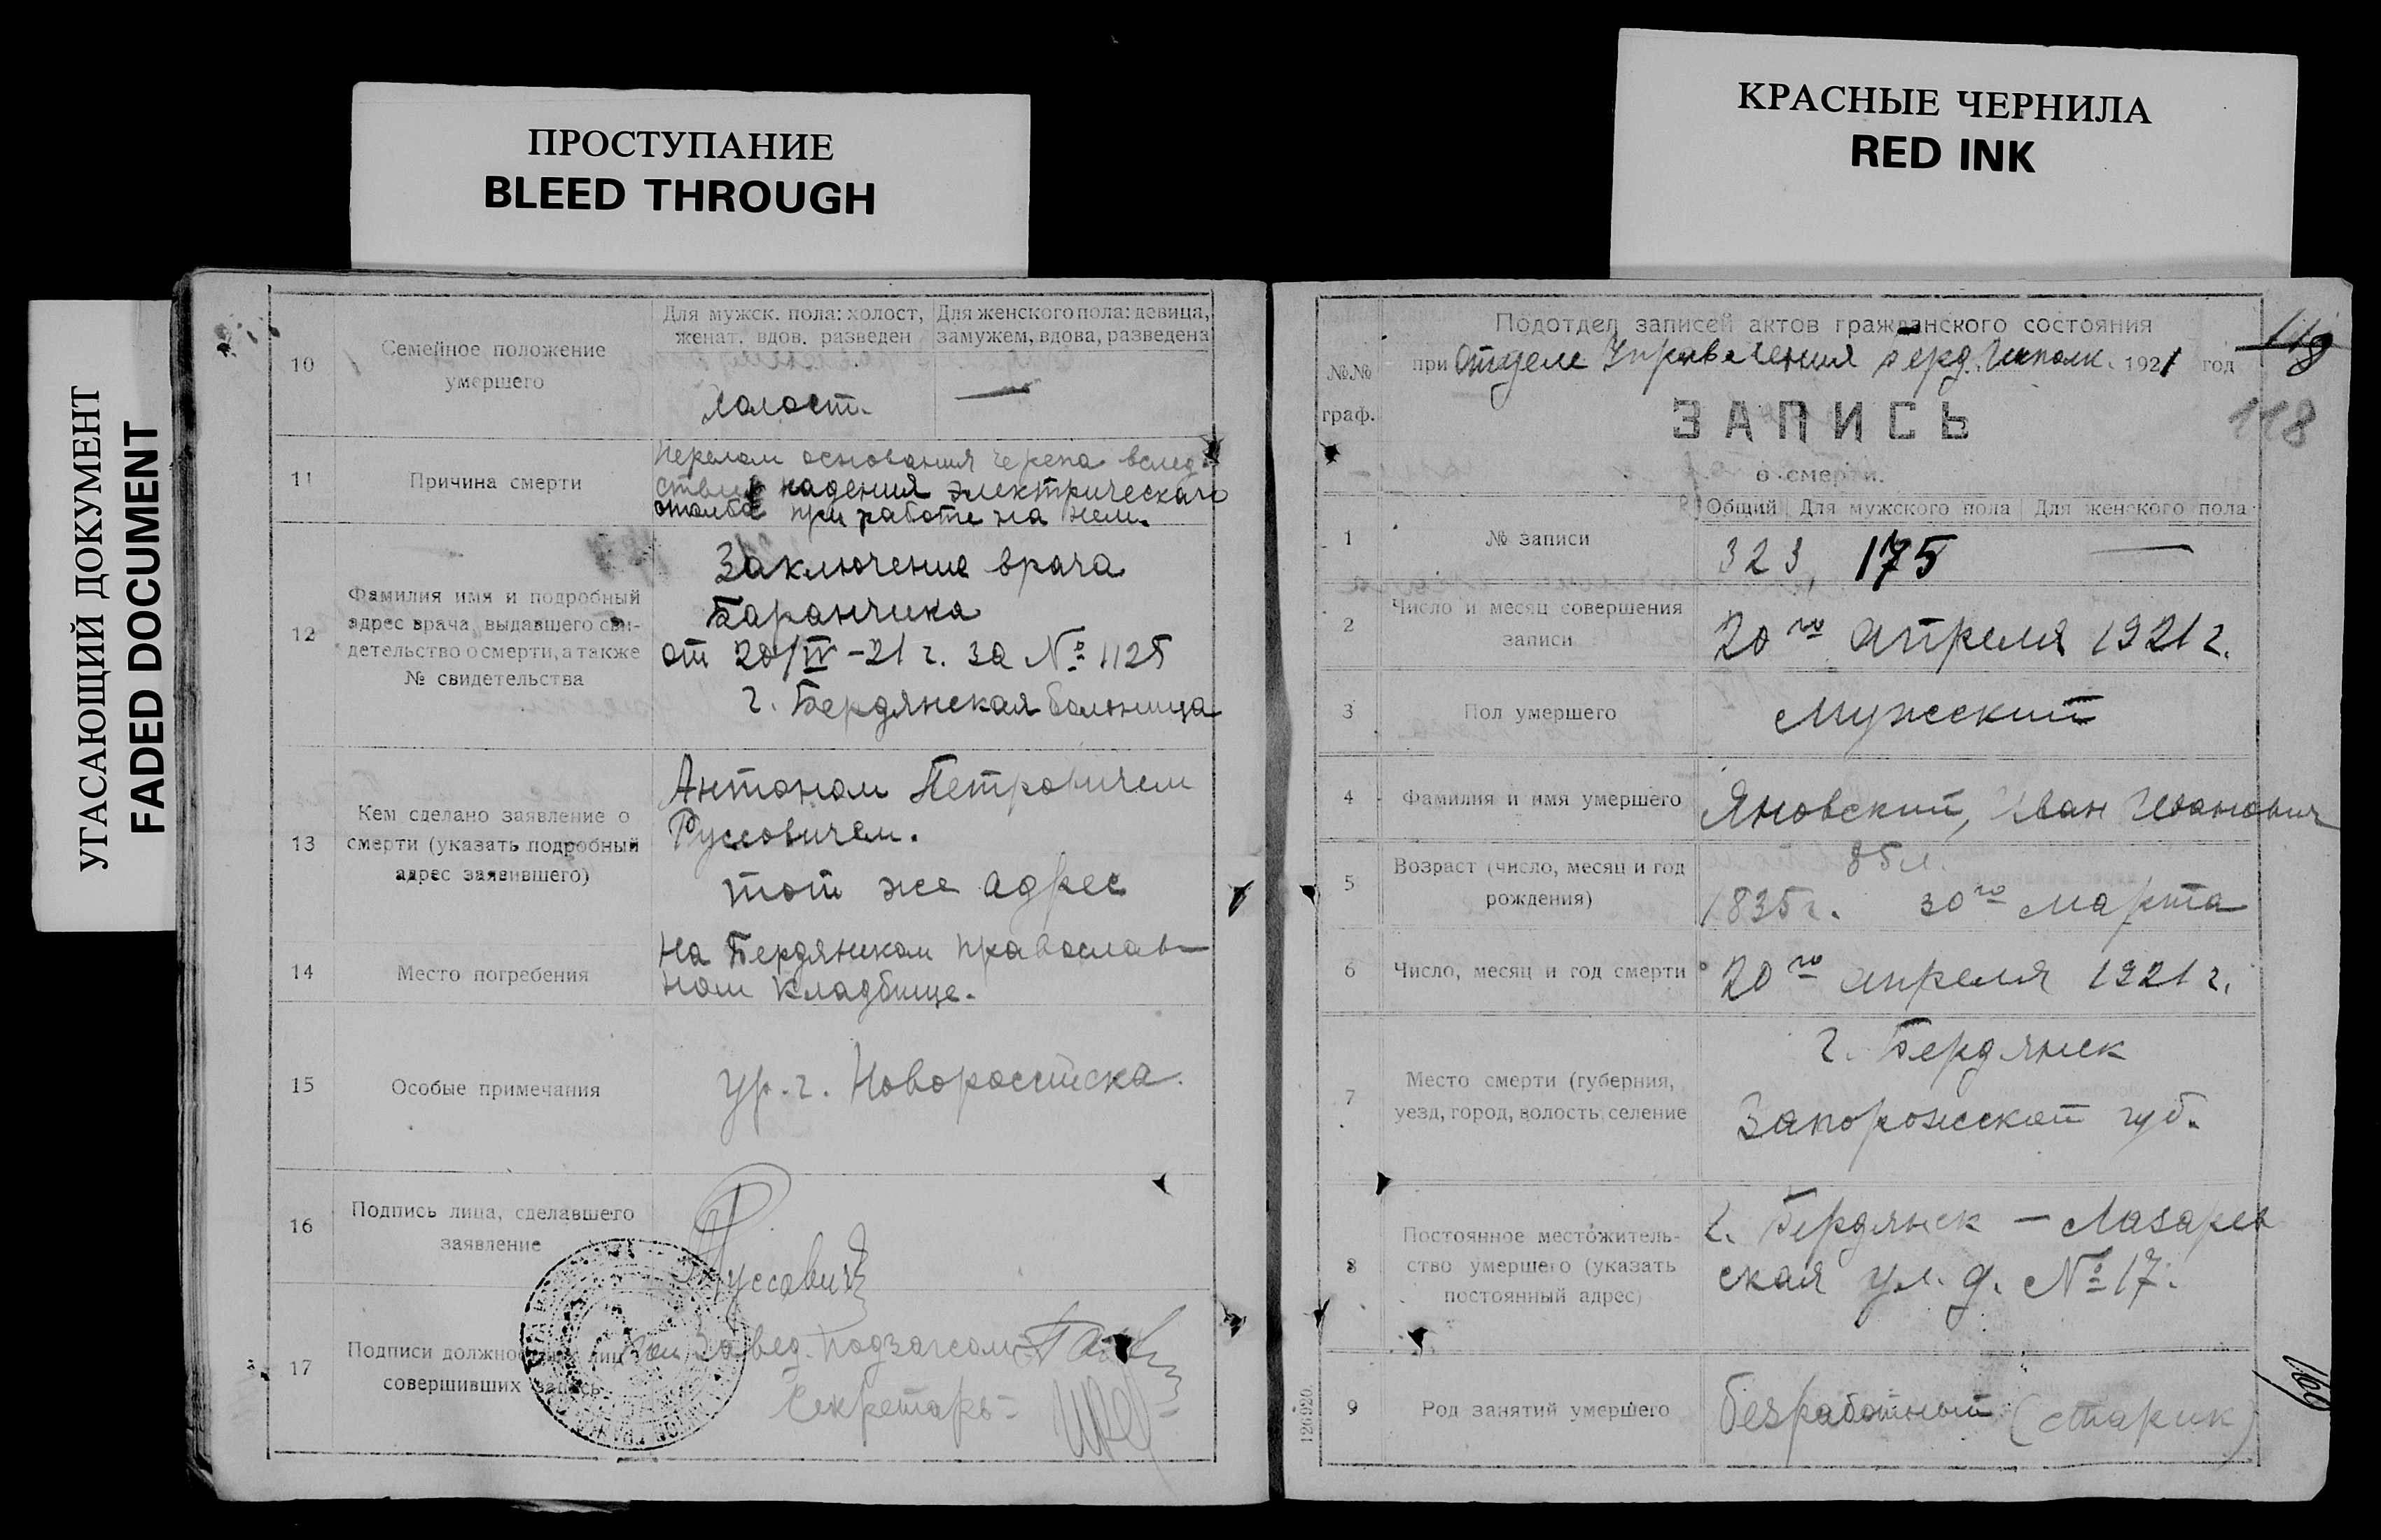 ПРОСТУПАНИЕ
BLEED THROUGH
КРАСНЫЕ ЧЕРНИЛА
RED INK
УГАСАЮЩИЙ ДОКУМЕНТ
FADED DOCUMENT
10
Семейное положение
умершего
Для мужск. пола: холост,
женат, вдов, разведен
Для женского пола: девица,
замужем, вдова, разведена
Холост. —
11
Причина смерти
Перелом основания черепа вслед-
ствие падения электрическаго
столба при работе на нем.
12
Фамилия имя и подробный
адрес врача, выдавшего сви-
детельство о смерти, а также
№ свидетельства
Заключение врача
Баранчика
от 20/IV-21 г. за № 1125
г. Бердянская больница
13
Кем сделано заявление о
смерти (указать подробный
адрес заявившего)
Антоном Петровичем
Руссовичем.
тот же адрес
14
Место погребения
на Бердянском православ-
ном кладбище.
15
Особые примечания
ур. г. Новороссийска.
16
Подпись лица, сделавшего
заявление
Руссович
17
Подписи должностных лиц
совершивших запись
Завед. подзагсом
Секретарь-
№№
граф.
Подотдел записей актов гражданского состояния
при Отделе Управления Берд. Исполк. 1921 год
118
118
ЗАПИСЬ
о смерти.
Общий Для мужского пола Для женского пола
1
№ записи
323 175 —
2
Число и месяц совершения
записи
20го апреля 1921 г.
3
Пол умершего
Мужский
4
Фамилия и имя умершего
Яновский, Иван Иванович
5
Возраст (число, месяц и год
рождения)
85 л.
1835 г. 30го марта
6
Число, месяц и год смерти
20го апреля 1921 г.
7
Место смерти (губерния,
уезд, город, волость, селение
г. Бердянск
Запорожской губ.
8
Постоянное местожитель-
ство умершего (указать
постоянный адрес)
г. Бердянск — Лазарев
ская ул. д. № 17.
9
Род занятий умершего
безработный (старик)
126920
169